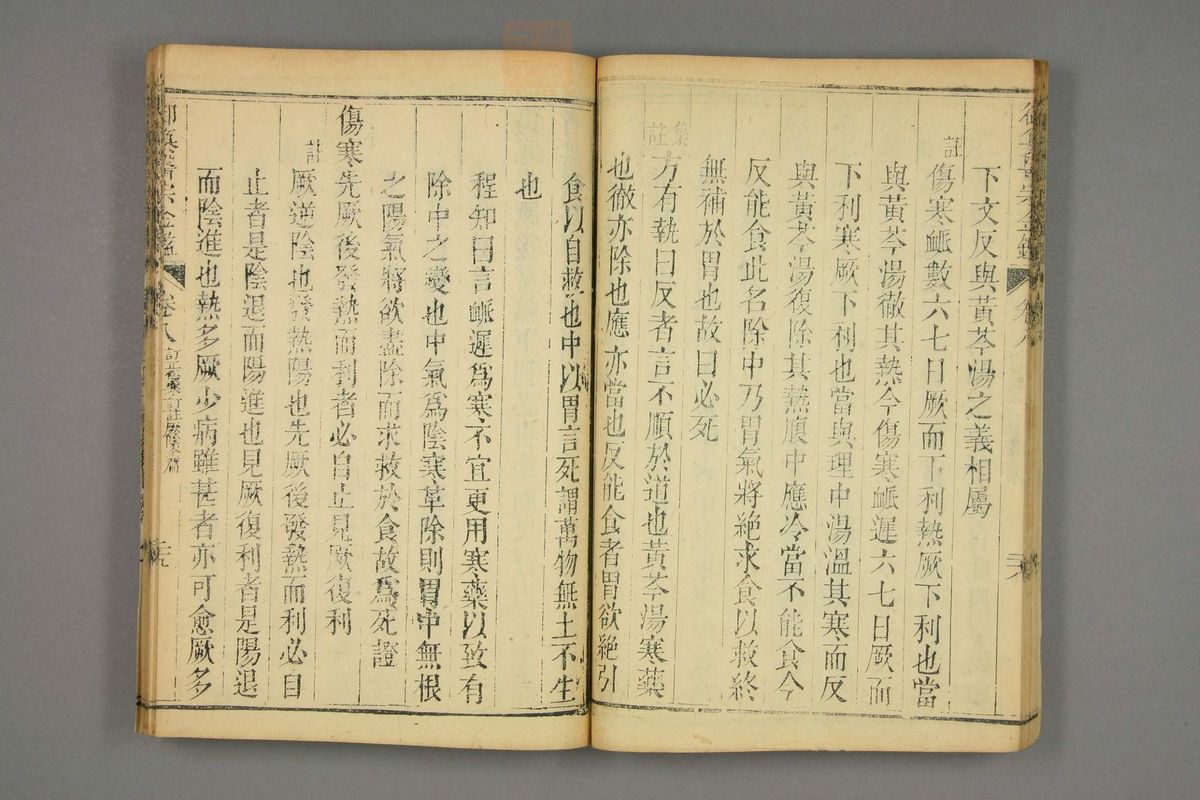 下文反與黃芩湯之義相屬
註
傷寒脈數六七日厥而下利熱厥下利也當
與黃芩湯徹其熱今傷寒脈遲六七日厥而
下利寒厥下利也當與理中湯溫其寒而反
與黃芩湯復除其熱腹中應冷當不能食今
反能食此名除中乃胃氣將絕求食以救終
無補於胃也故曰必死
集註
方有執曰反者言不順於道也黃芩湯寒藥
也徹亦除也應亦當也反能食者胃欲絕引
食以自救也中以胃言死謂萬物無土不生
也
程知曰言脈遲爲寒不宜更用寒藥以致有
除中之變也中氣爲陰寒革除則胃中無根
之陽氣將欲盡除而求救於食故爲死證
傷寒先厥後發熱而利者必自止見厥復利
註
厥逆陰也發熱陽也先厥後發熱而利必自
止者是陰退而陽進也見厥復利者是陽退
而陰進也熱多厥少病雖甚者亦可愈厥多
卷八